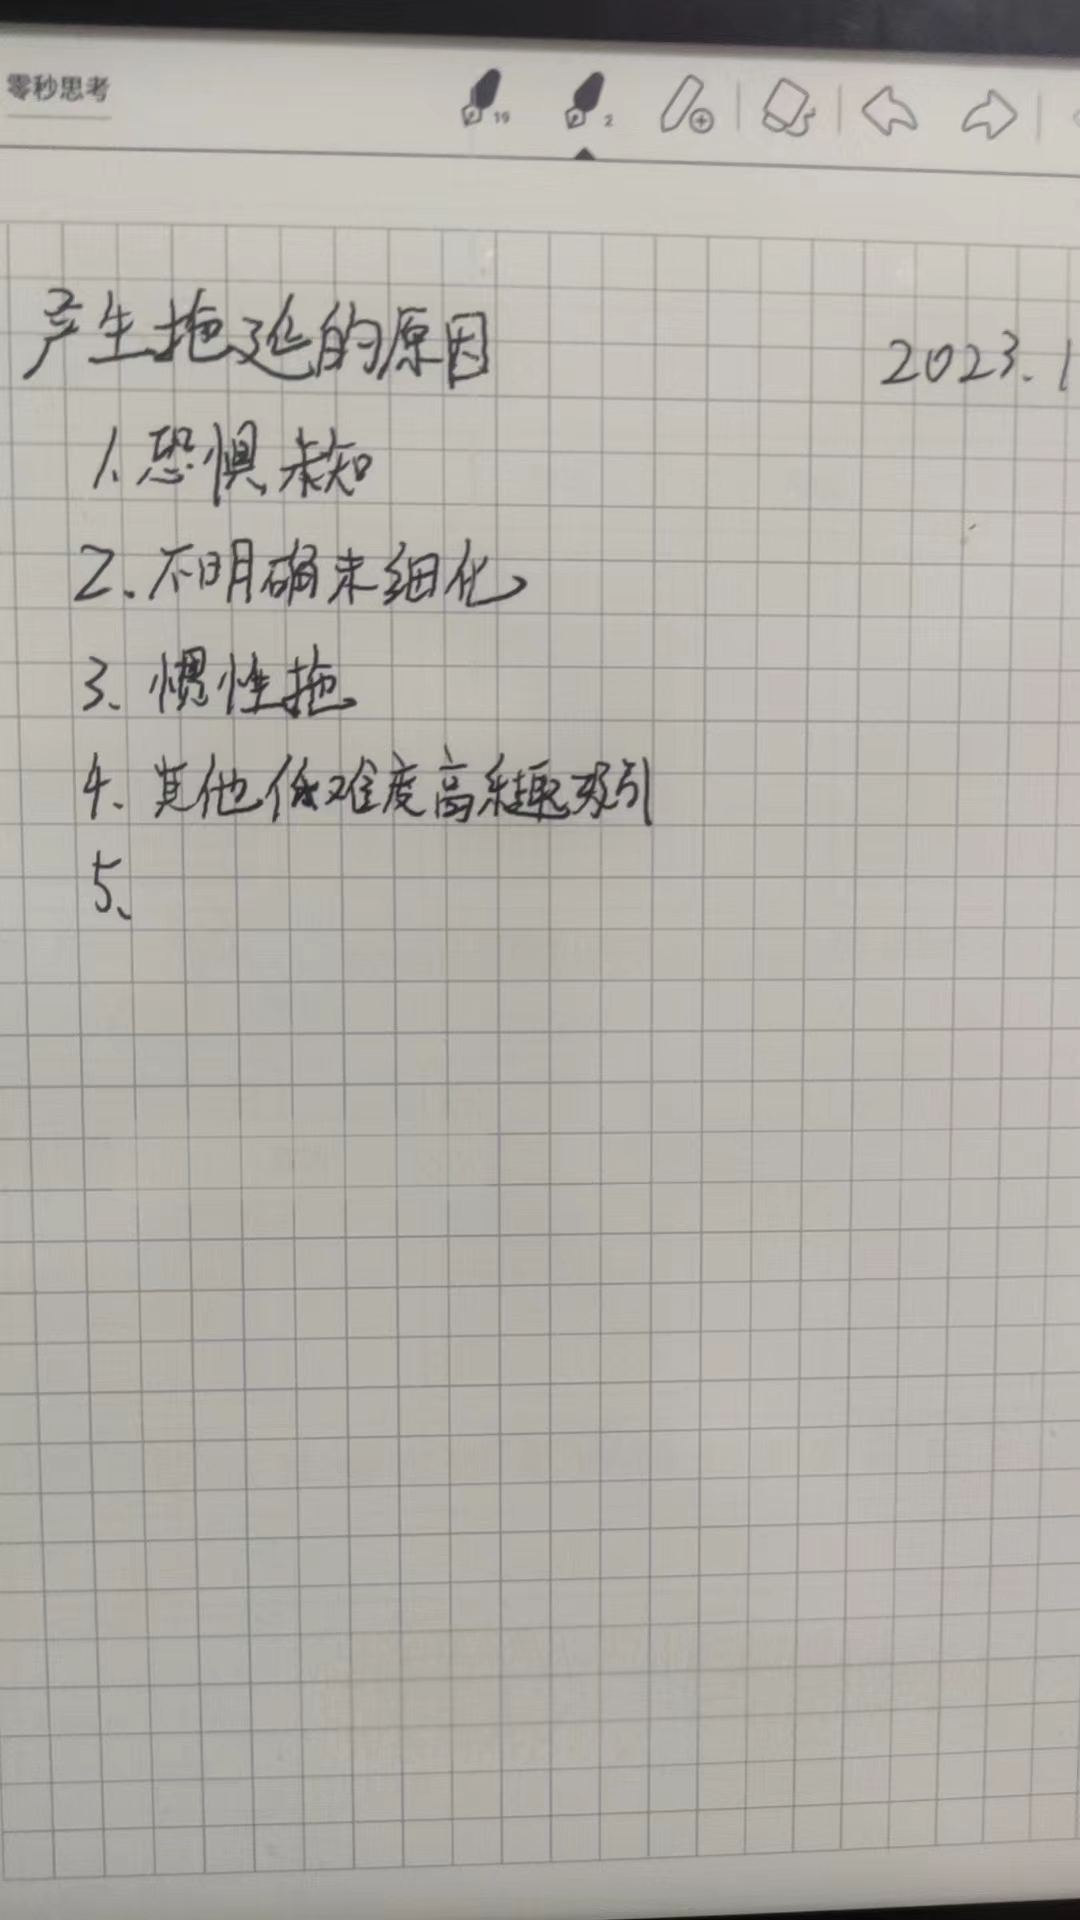 零秒思考
19
2
产生拖延的原因
2023.1
1、恐惧未知
2、不明确未细化
3、惯性拖
4、其他低难度高乐趣吸引
5、